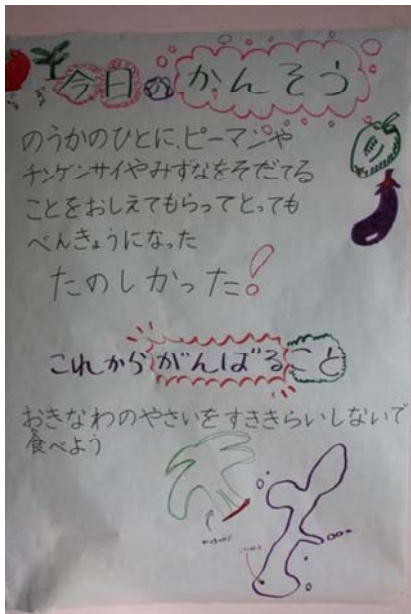 今日のかんそう
のうかのひとに、ピーマンや
チンゲンサイやみずなをそだてる
ことをおしえてもらってとっても
べんきょうになった
たのしかった!
これからがんばること
おきなわのやさいをすききらいしないで
食べよう